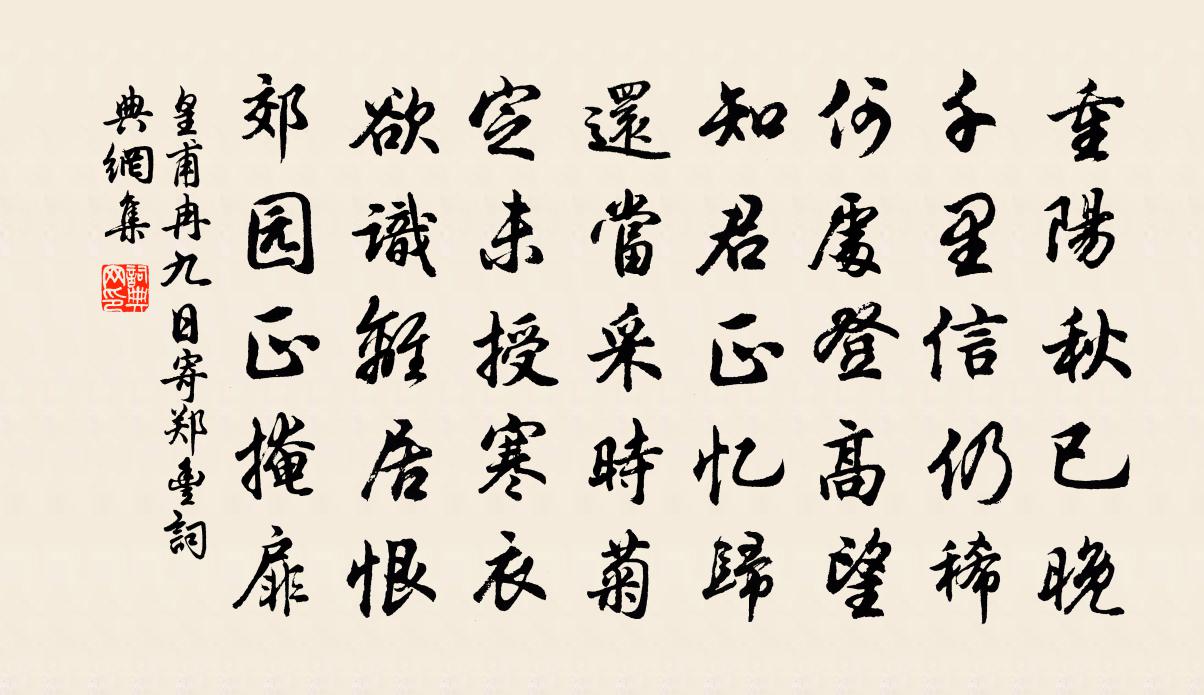 重陽秋已晚
千里信仍稀
何處登高望
知君正忆歸
還當采時菊
定未授寒衣
欲識離居恨
郊园正掩扉
皇甫冉九日寄郑豊詞
典網集
詞典
网印